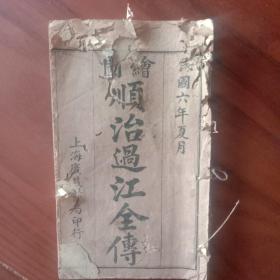 民國六年夏月
繪圖
順治過江全傳
上海廣益書局印行